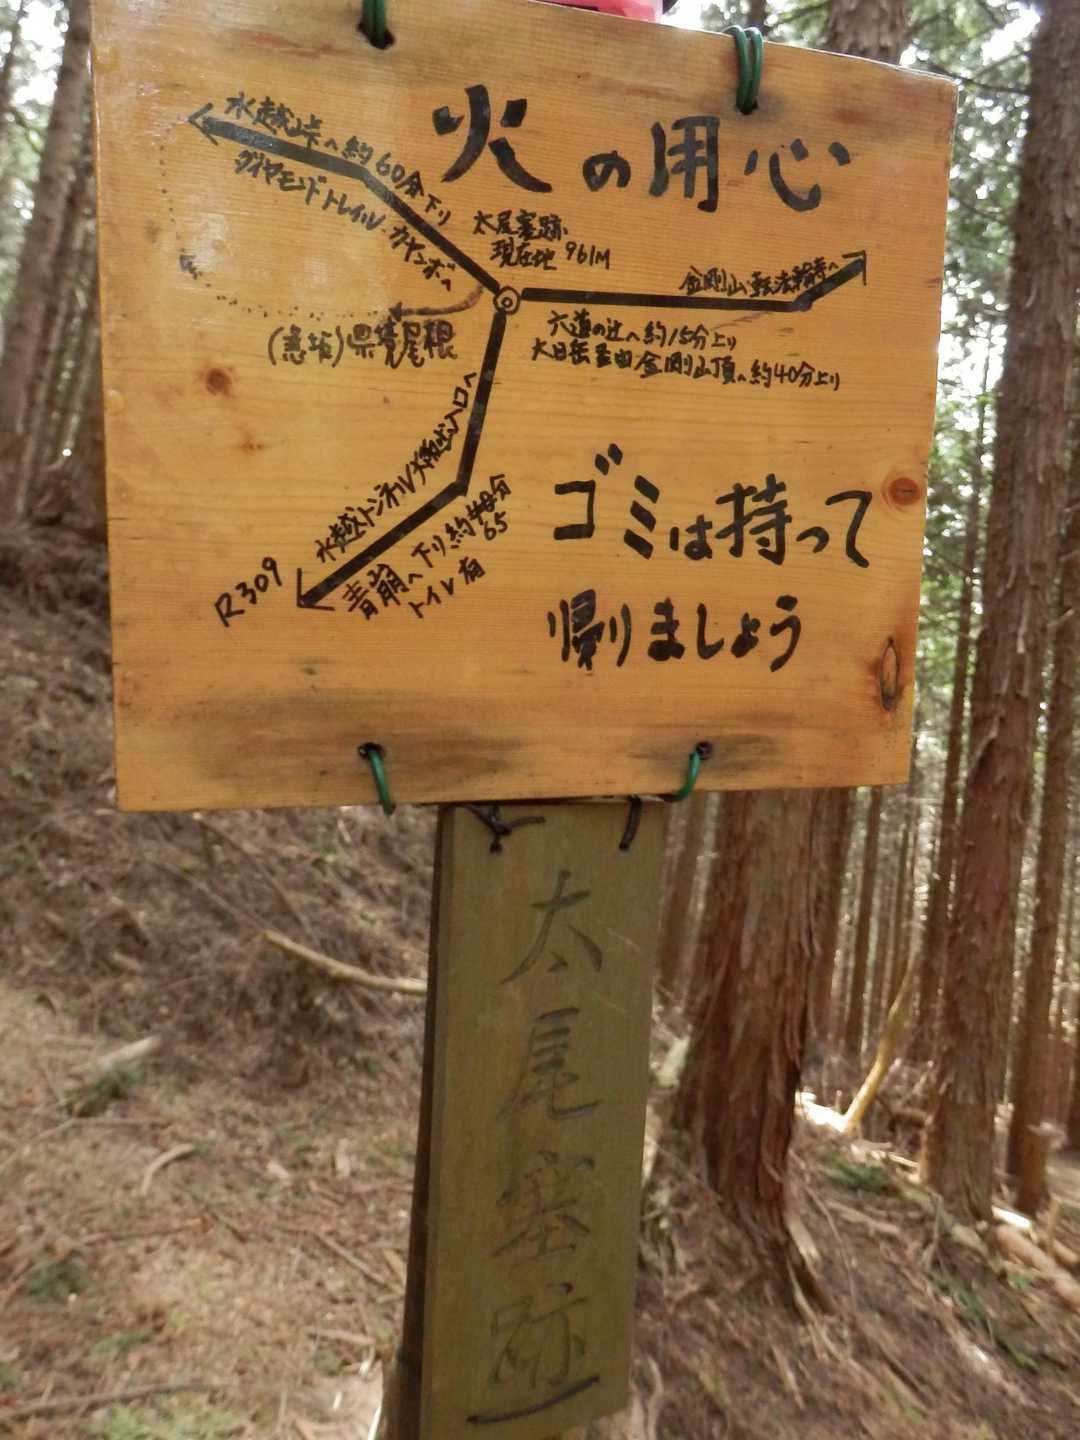 火の用心
水越峠へ約60分下り
ダイヤモンドトレイル・カヤンボへ
太尾塞跡
現在地 961M
金剛山転法輪寺へ
六道の辻へ約15分上り
大日岳経由金剛山頂へ約40分上り
(悪坂)県境尾根
水越トンネル太尾越入口へ
R309
青崩へ下り約
65
分
トイレ有
ゴミは持って
帰りましょう
太尾塞跡